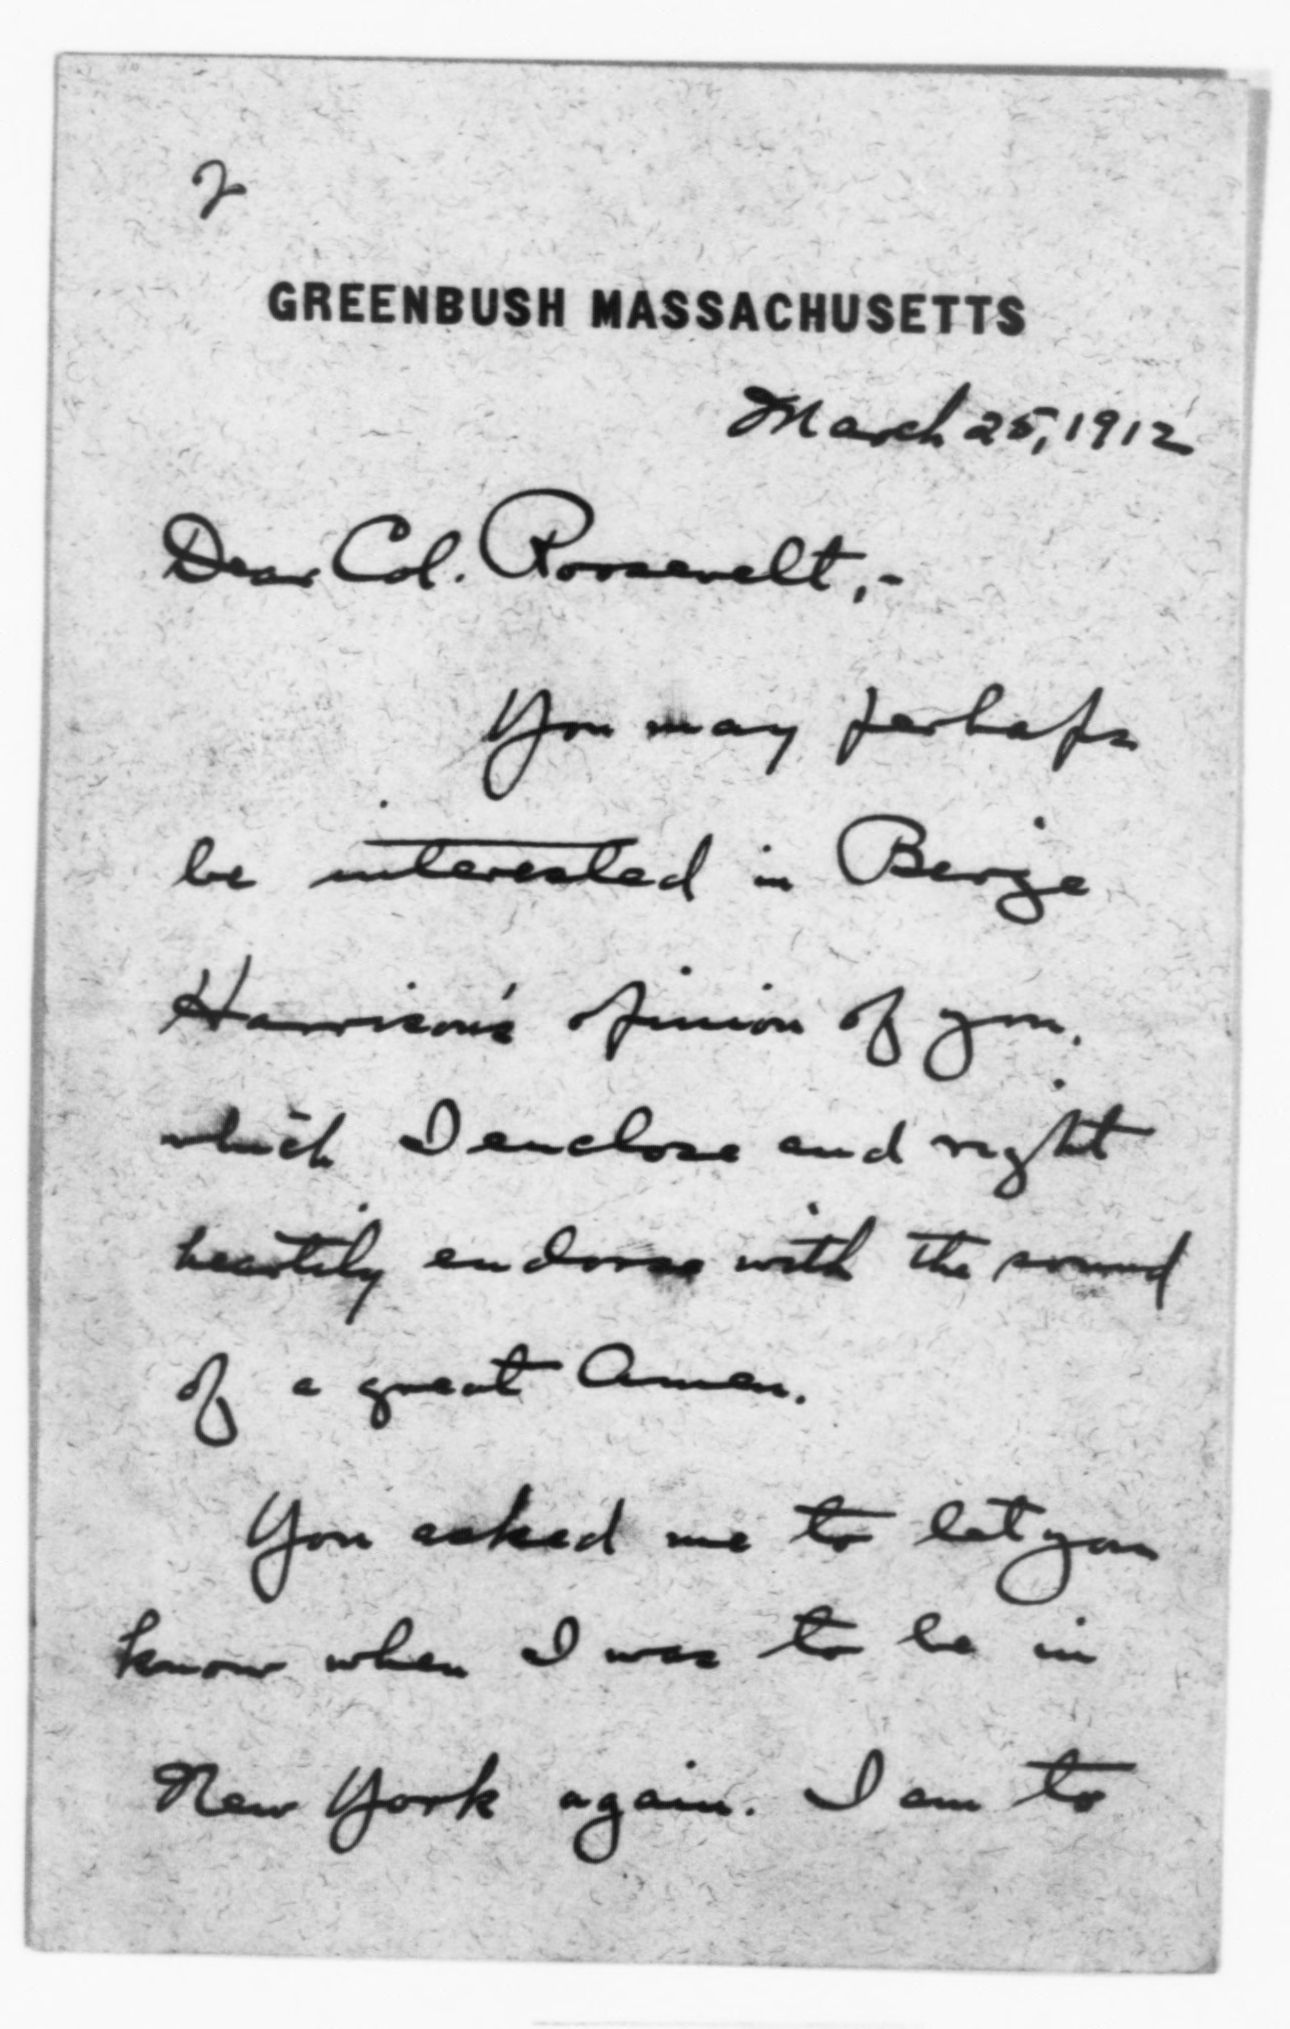 GREENBUSH MASSACHUSETTS
March 25, 1912
Dear Col. Roosevelt,-
You may perhaps
be interested in Berge
Harrison's opinion of you,
which I enclose and right
heartily endorse with the sound
of a great Amen.
You asked me to let you
know when I was to be in
New York again. I am to